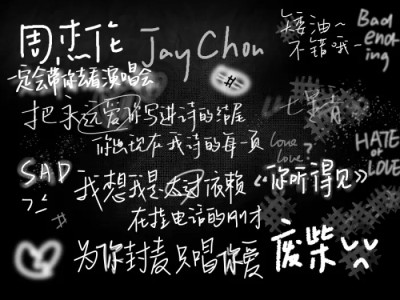 周杰伦 Jay Chou
矮油~
不错哦~
Bad
end-
ing
一定会带你去看演唱会
#
把永远爱你写进诗的结尾
七里香
你出现在我诗的每一页
love
love?
HATE
or
LOVE
SAD
我想我是太过依赖
《你听得见》
在挂电话的刚才
#
为你封麦只唱你爱
废柴